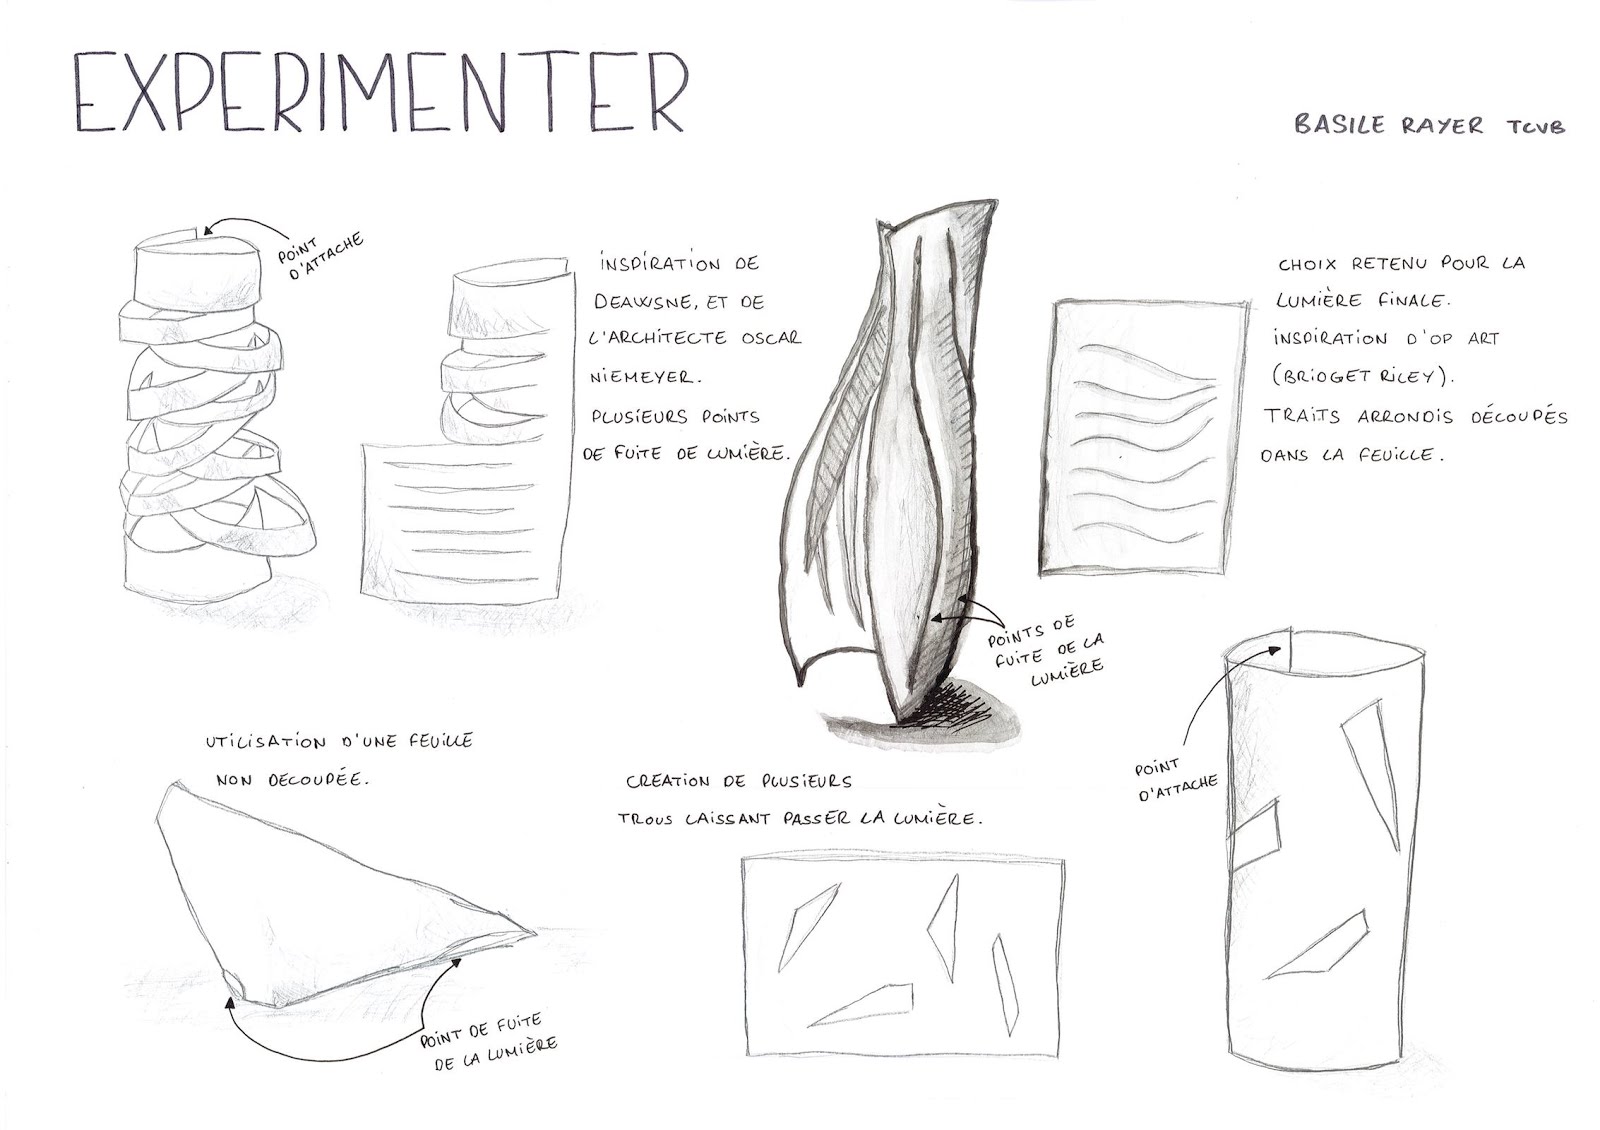 EXPERIMENTER
BASILE RAYER TCVB
POINT
D'ATTACHE
INSPIRATION DE
ET DE
L'ARCHITECTE OSCAR
NIEMEYER.
PLUSIEURS POINTS
DE FUITE DE LUMIÈRE.
CHOIX RETENU POUR LA
LUMIÈRE FINALE.
INSPIRATION D'OP ART
(BRIDGET RILEY).
TRAITS ARRONDIS DÉCOUPÉS
DANS LA FEUILLE.
POINTS DE
FUITE DE LA
LUMIÈRE
UTILISATION D'UNE FEUILLE
NON DECOUPÉE.
POINT DE FUITE
DE LA LUMIÈRE
CREATION DE PLUSIEURS
TROUS LAISSANT PASSER LA LUMIÈRE.
POINT
D'ATTACHE